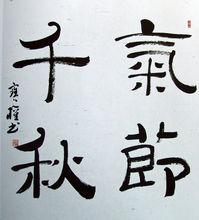 氣節
千秋